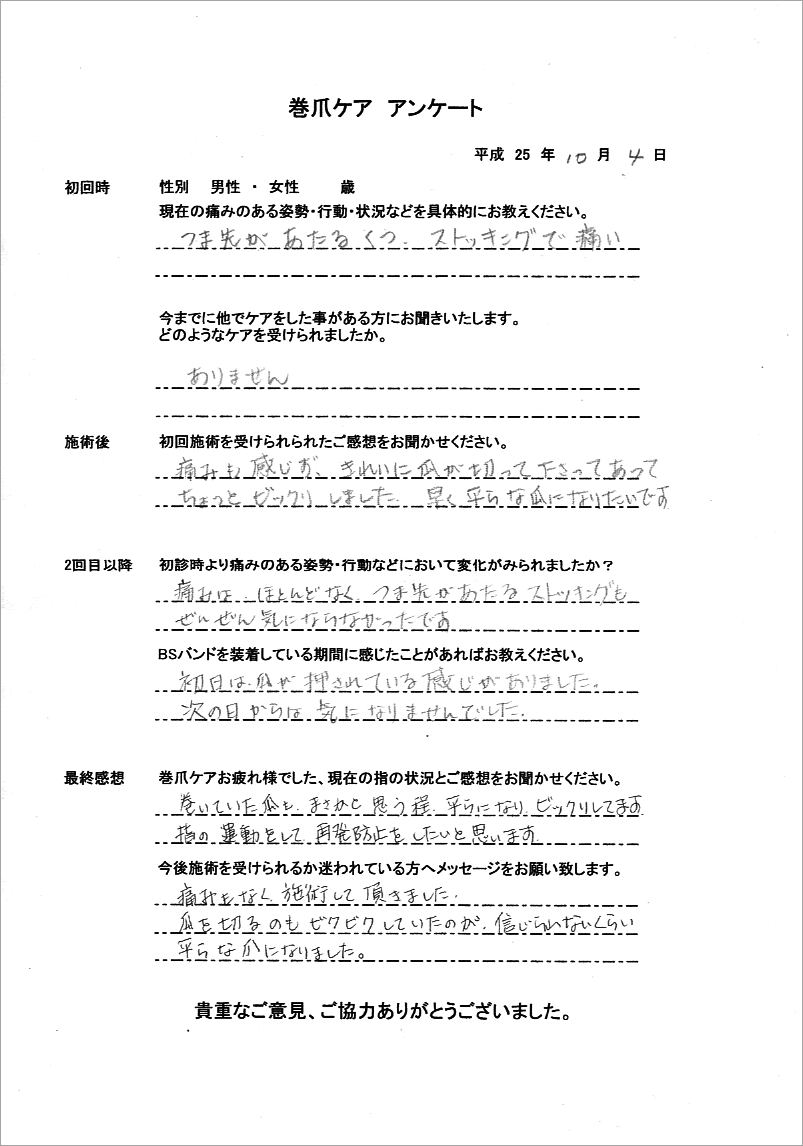 巻爪ケア アンケート
平成 25 年 10 月 4 日
初回時 性別 男性 ・ 女性 歳
現在の痛みのある姿勢・行動・状況などを具体的にお教えください。
つま先が あたる くつ、ストッキングで 痛い
今までに他でケアをした事がある方にお聞きいたします。
どのようなケアを受けられましたか。
ありません
施術後 初回施術を受けられられたご感想をお聞かせください。
痛みも 感じず、きれいに 爪が 切って 下さってあって
ちょっと ビックリ しました。 早く 平らな爪になりたいです
2回目以降 初診時より痛みのある姿勢・行動などにおいて変化がみられましたか？
痛みは、ほとんどなく、つま先があたるストッキングも
ぜんぜん気にならなかったです
BSバンドを装着している期間に感じたことがあればお教えください。
初日は、爪が 押されている感じがありました。
次の日からは 気になりませんでした。
最終感想 巻爪ケアお疲れ様でした、現在の指の状況とご感想をお聞かせください。
巻いていた爪も、まさかと思う程、平らになり、ビックリしてます
指の 運動をして、再発防止をしたいと思います
今後施術を受けられるか迷われている方へメッセージをお願い致します。
痛みもなく、施術して頂きました。
爪を切るのも ビクビクしていたのが、信じられないくらい
平らな爪になりました。
貴重なご意見、ご協力ありがとうございました。